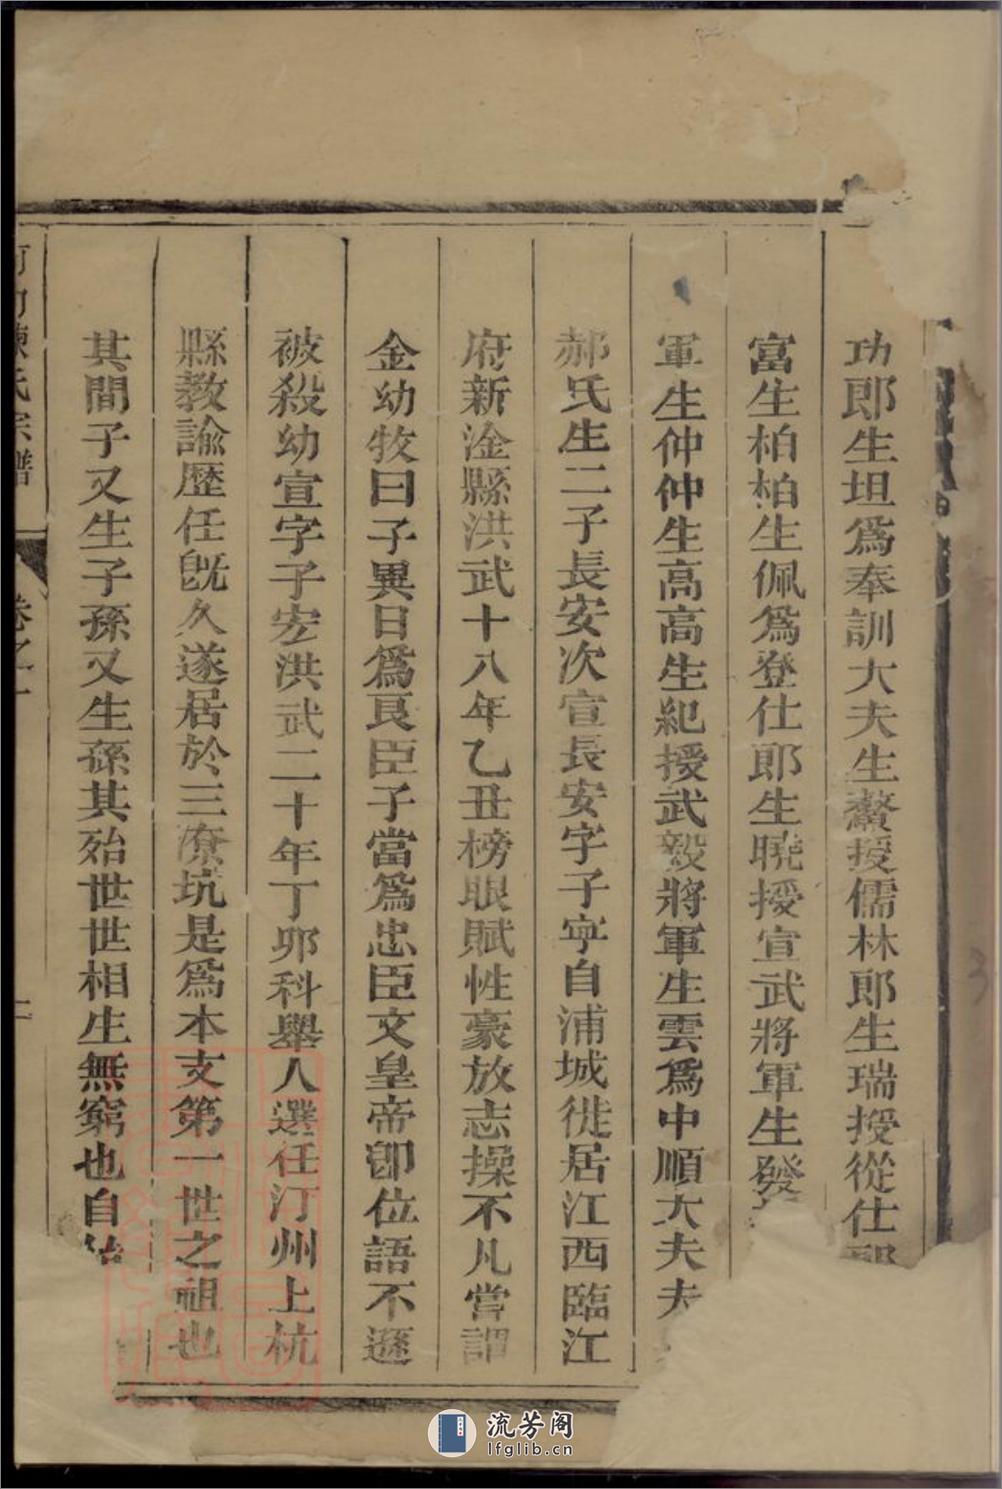 功郎生坦爲奉訓大夫生鰲授儒林郎生瑞授從仕郎
富生柏柏生佩爲登仕郎生曉授宣武將軍生發
軍生仲仲生高高生紀授武毅將軍生雲爲中順大夫夫
郝氏生二子長安次宣長安字子寧自浦城徙居江西臨江
府新淦縣洪武十八年乙丑榜眼賦性豪放志操不凡嘗謂
金幼牧曰子異日爲良臣子當爲忠臣文皇帝卽位語不遜
被殺幼宣字子宏洪武二十年丁卯科舉人選任汀州上杭
縣教諭歷任旣久遂居於三潦坑是爲本支第一世之祖也
其間子又生子孫又生孫其殆世世相生無窮也自
氏宗譜 卷之一
流芳阁
lfglib.cn